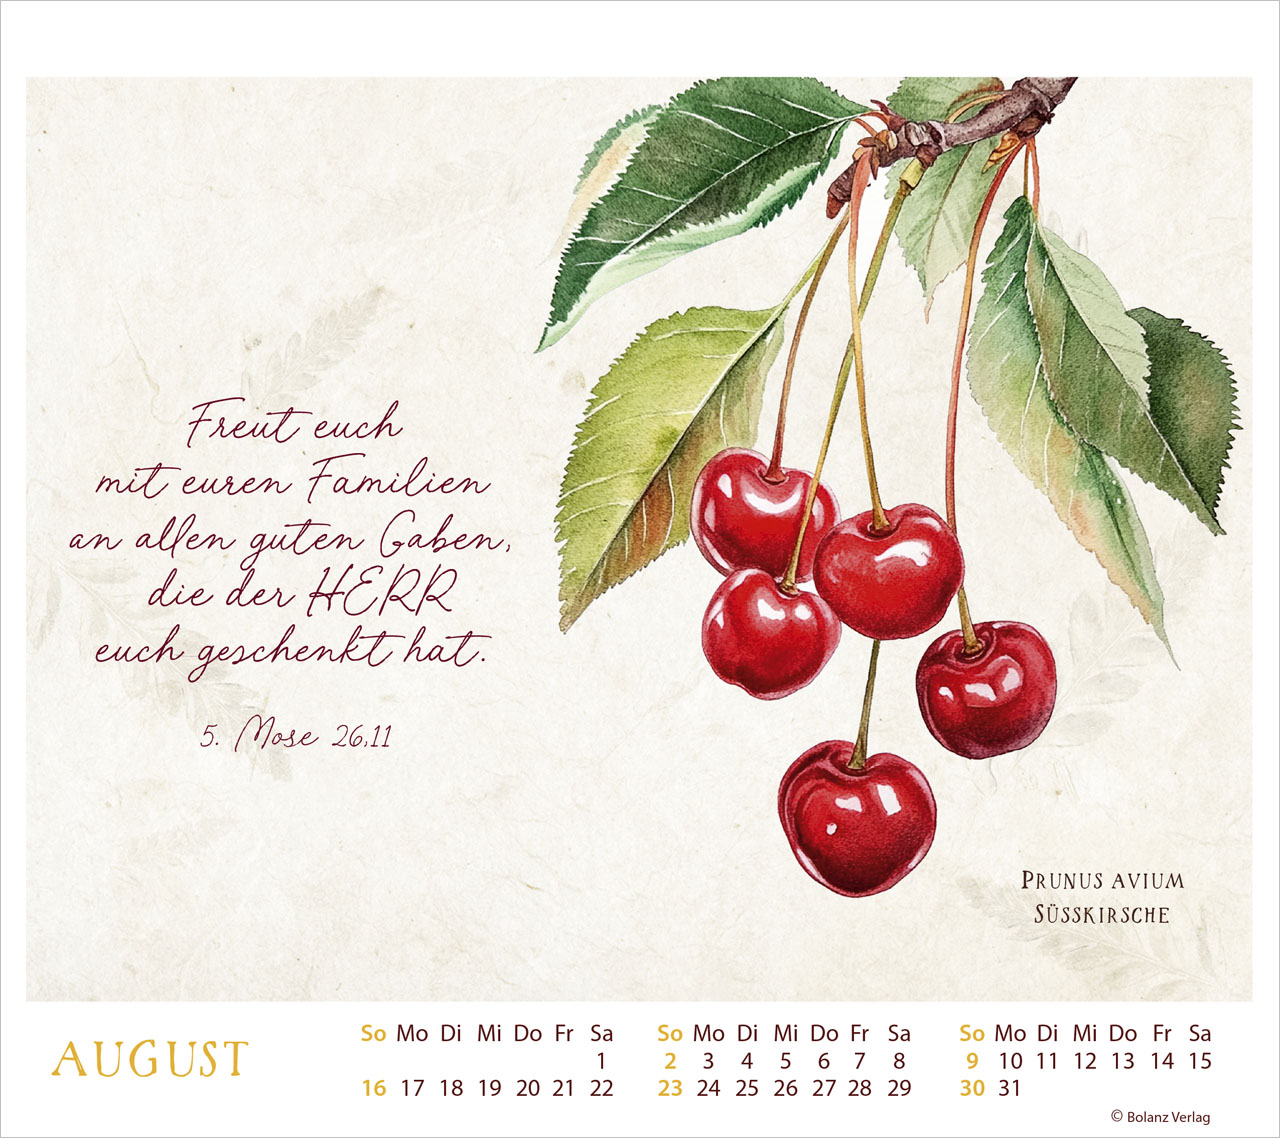 Freut euch
mit euren Familien
an allen guten Gaben,
die der HERR
euch geschenkt hat.
5. Mose 26,11
PRUNUS AVIUM
SÜSSKIRSCHE
AUGUST
So Mo Di Mi Do Fr Sa So Mo Di Mi Do Fr Sa So Mo Di Mi Do Fr Sa
1 2 3 4 5 6 7 8 9 10 11 12 13 14 15
16 17 18 19 20 21 22 23 24 25 26 27 28 29 30 31
© Bolanz Verlag